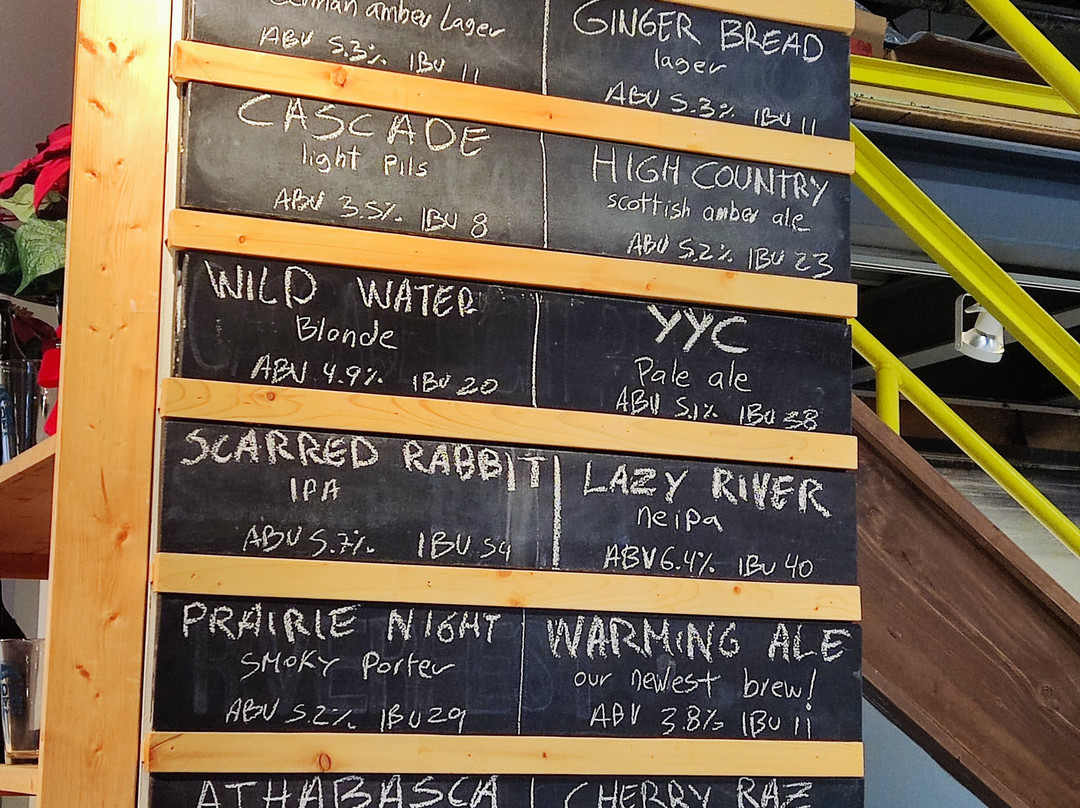 German amber Lager
ABV 5.3% IBU 11
GINGER BREAD
lager
ABV 5.3% IBU 11
CASCADE
light Pils
ABV 3.5% IBU 8
HIGH COUNTRY
scottish amber ale
ABV 5.2% IBU 23
WILD WATER
Blonde
ABV 4.9% IBU 20
YYC
Pale ale
ABV 5.1% IBU 38
SCARRED RABBIT
IPA
ABV 5.7% IBU 54
LAZY RIVER
neipa
ABV 6.4% IBU 40
PRAIRIE NIGHT
SMOKY Porter
ABV 5.2% IBU 29
WARMiNG ALE
our newest brew!
ABV 3.8% IBU 11
ATHABASCA
CHERRY RAZ